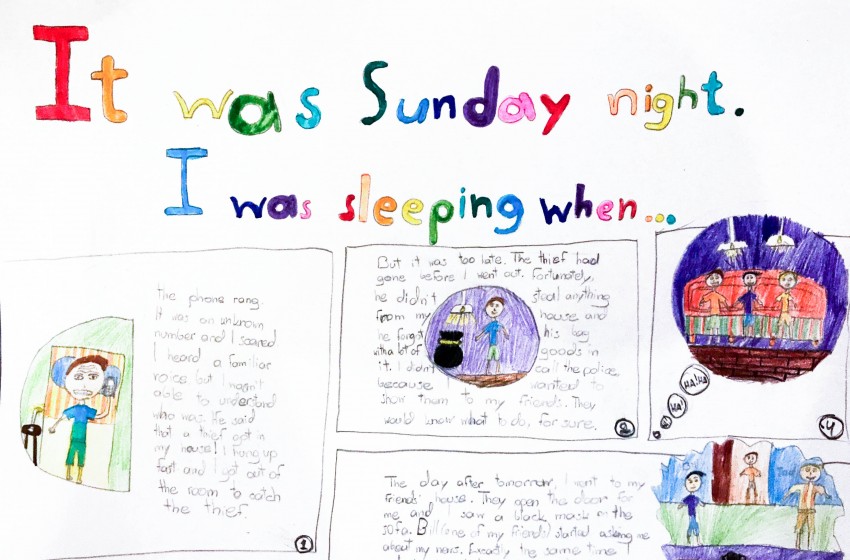 It was Sunday night.
I was sleeping when...
the phone rang.
It was an unknown
number and I
I heard a familiar
voice but I wasn't
able to understand
who was. He said
that a thief got in
my house! I hung up
fast and I got out of
the room to catch
the thief.
1
But it was too late. The thief had
gone before I went out. Fortunately,
he didn't steal anything
from my house and
he forgot his bag
with a lot of goods in
it. I didn't call the police
because I wanted to
show them to my friends. They
would know what to do, for sure.
2
HA! HA!
HA!
4
The day after tomorrow, I went to my
friends' house. They open the door for
me and I saw a black mask on the
sofa. Bill (one of my friends) started asking me
about my news. Exactly the same time